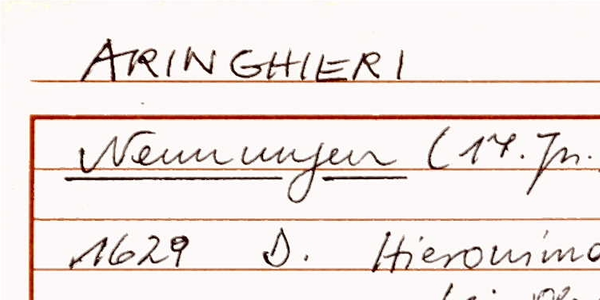 ARINGHIERI
Nennungen (17. Jh.
1629 D. Hieronimo